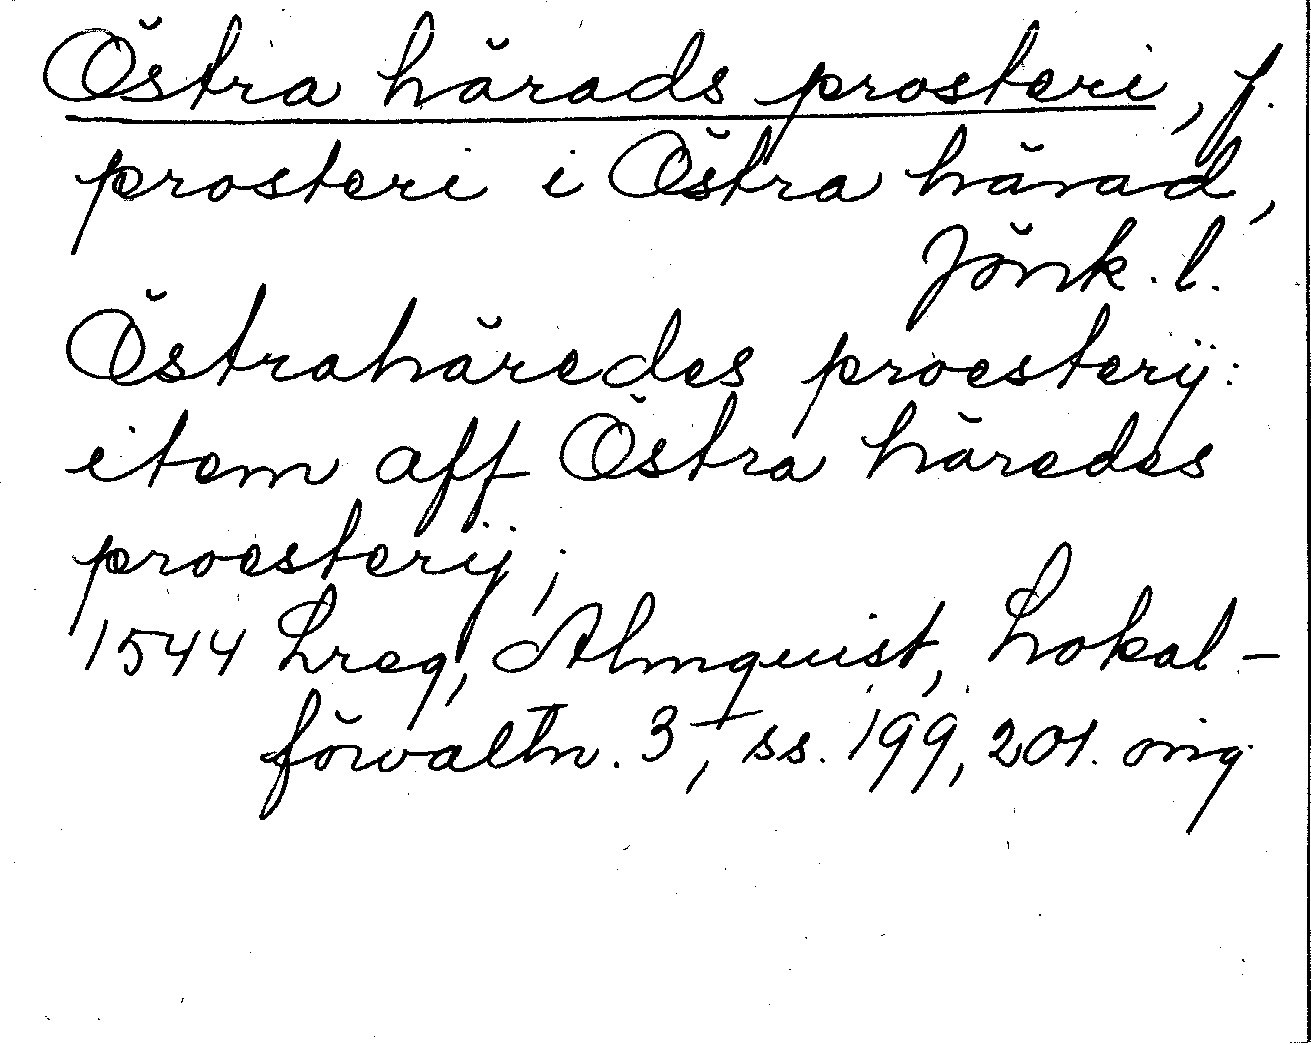 Östra härads prosteri, f.
prosteri i Östra härad,
Jönk. l.
Östrahäredes proesterÿ:
item aff Östra häredes
proesterÿ;
1544 Lreg, Almquist, Lokal-
förvaltn. 3, ss. 199, 201. orig